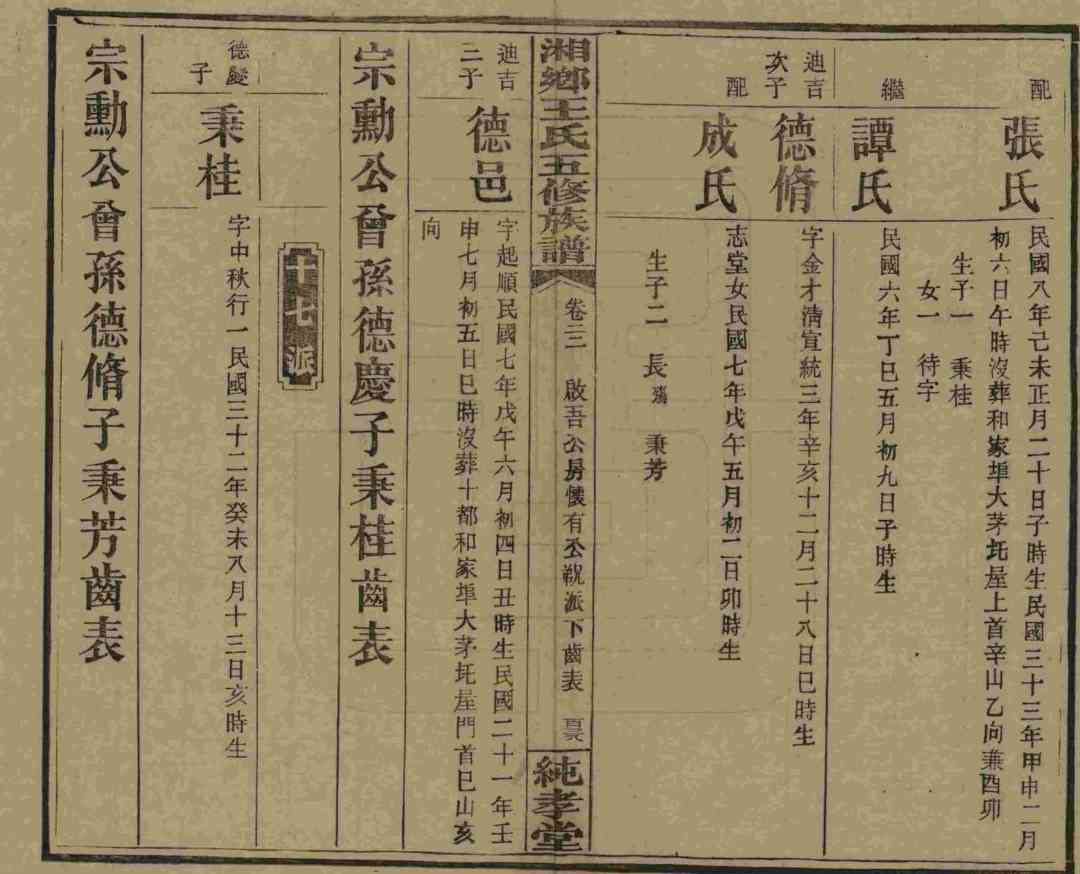 配
張氏
民國八年己未正月二十日子時生民國三十三年甲申二月
初六日午時沒葬和家埠大茅坵屋上首辛山乙向兼酉卯
生子一　秉桂
女一　待字
繼
譚氏
民國六年丁巳五月初九日子時生
迪吉
次子
德脩
字金才清宣統三年辛亥十二月二十八日巳時生
配
成氏
志堂女民國七年戊午五月初二日卯時生
生子二　長殤　秉芳
湘鄉王氏五修族譜
卷三二　啟吾公房懷有公𮌎派下齒表
純孝堂
迪吉
三子
德邑
字起順民國七年戊午六月初四日丑時生民國二十一年壬
申七月初五日巳時沒葬十都和家埠大茅坵屋門首巳山亥
向
宗勳公曾孫德慶子秉桂齒表
十七派
德慶
子
秉桂
字中秋行一民國三十二年癸未八月十三日亥時生
宗勳公曾孫德脩子秉芳齒表